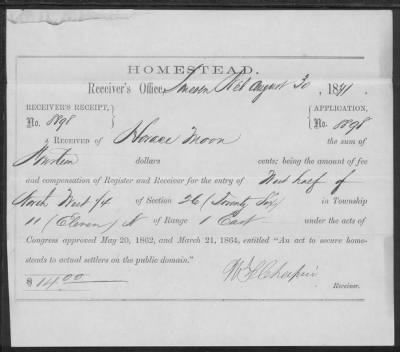 HOMESTEAD.
Receiver's Office, Lincoln Neb August 30, 1871
RECEIVER'S RECEIPT, APPLICATION,
No. 8898 No. 8898
RECEIVED OF Horace Moon the sum of
Fourteen dollars cents; being the amount of fee
and compensation of Register and Receiver for the entry of West half of
North West 1/4 of Section 26 (Twenty Six) in Township
11 (Eleven) N of Range 1 East under the acts of
Congress approved May 20, 1862, and March 21, 1864, entitled "An act to secure home-
steads to actual settlers on the public domain."
$14.00
Receiver.